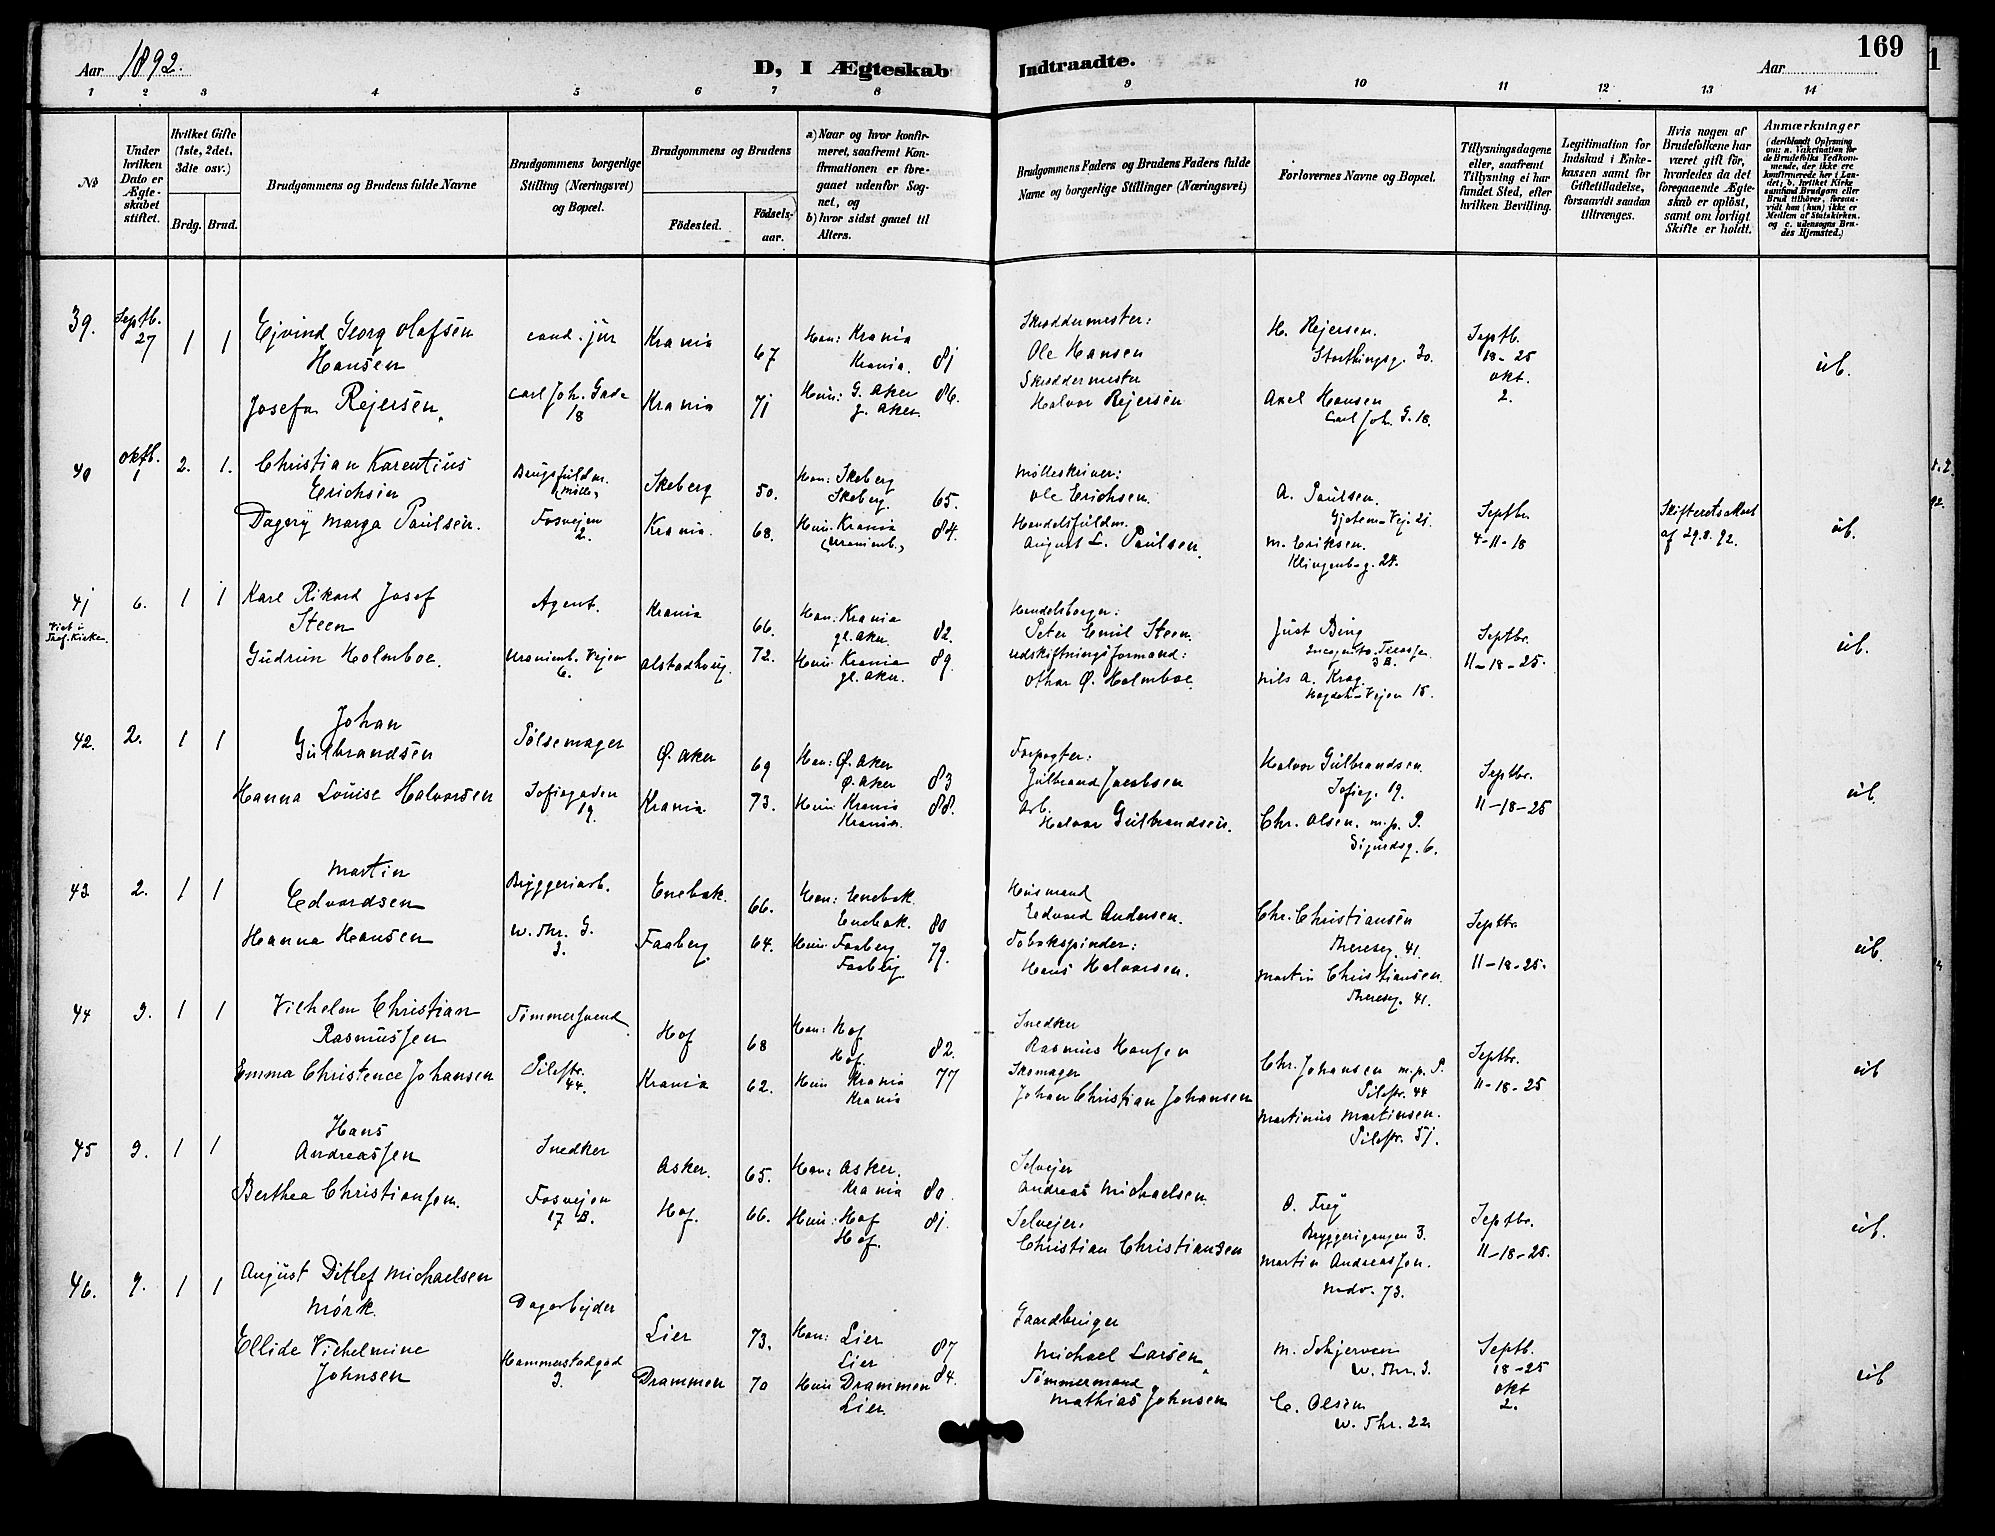 Aar 1892.
D, I Ægteskab Indtraadte.
Aar
169
1 2 3 4 5 6 7 8 9 10 11 12 13 14
No
Under hvilken Dato er Ægteskabet stiftet.
Hvilket Gifte (1ste, 2det, 3die osv.)
Brdg. Brud.
Brudgommens og Brudens fulde Navne
Brudgommens borgerlige Stilling (Næringsvei) og Bopæl.
Brudgommens og Brudens
Fødested.
Fødselsaar.
a) Naar og hvor konfirmeret, saafremt Konfirmationen er foregaaet udenfor Sognet, og
b) hvor sidst gaaet til Alters.
Brudgommens Faders og Brudens Faders fulde Navne og borgerlige Stillinger (Næringsvei)
Forlovernes Navne og Bopæl.
Tillysningsdagene eller, saafremt Tillysning ei har fundet Sted, efter hvilken Bevilling.
Legitimation for Indskud i Enkekassen samt for Giftetilladelse, forsaavidt saadan tiltrænges.
Hvis nogen af Brudefolkene har været gift før, hvorledes da det foregaaende Ægteskab er opløst, samt om lovligt Skifte er holdt.
Anmærkninger
(deriblandt Oplysning om: a. Vakcination for de Brudefolks Vedkommende, der ikke ere konfirmerede her i Landet; b. hvilket Kirkesamfund Brudgom eller Brud tilhører, forsaavidt han (hun) ikke er Medlem af Statskirken, og c. udensogns Brudes Hjemsted.)
39. Septb. 27 1 1
Ejvind Georg Olafsen
Hansen
Josefa Rejersen.
cand. jur
Carl Joh. Gade
18
Krania 67
Krania 71
Han: Krania
Krania. 81
Hun: G. Aker 86.
g. Aker.
Skræddermester:
Ole Hansen
Skræddermester
Halvor Rejersen
H. Rejersen.
Storthingsg. 20.
Axel Hansen
Carl Joh. G. 18.
Septb.
18-25
Okt.
2.
ub.
40 Oktb. 1 2. 1.
Christian Karentius
Erichsen
Dagny Marga Paulsen.
Brugsfuldm.
(Mølle)
Fosvejen
2.
Skeberg 50.
Krania. 68.
Han: Skeberg
Skeberg. 65.
Hun: Krania 84.
(Uranienb.)
Mølleskriver:
Ole Erichsen.
Handelsfuldm.
August L. Paulsen.
A. Paulsen.
Gjetem-Vej. 21.
M. Eriksen.
Klingenbg. 24.
Septbr.
4-11-18
af 29.8.92.
ub.
41 6. 1 1
Viet i
Tref. Kirke.
Karl Rikard Josef
Steen
Gudrun Holmboe.
Agent.
Uranienb. Vejen
6.
Krania 66.
Alstadhoug 72.
Han: Krania
gl. Aker. 82.
Hun: Krania 89.
gl. Aker.
Handelsborger:
Peter Emil Steen.
Udskiftningsformand:
Othar Ø. Holmboe.
Just Bing
Incognito Terasse
3 B.
Nils A. Krag.
Hegdeh-Vejen 15.
Septbr.
11-18-25.
ub.
42. 2. 1 1
Johan
Gulbrandsen
Hanna Louise Halvorsen
Pølsemager
Sofiegaden
19.
Ø. Aker 69
Krania 73.
Han: Ø. Aker
Ø. Aker 83
Hun: Krania 88.
Krania.
Forpagter:
Gulbrand Jacobsen
Arb.
Halvor Gulbrandsen.
Halvor Gulbrandsen.
Sofieg. 19.
Chr. Olsen. m.p. P.
Sigurdsg. 6.
Septbr.
11-18-25
ub.
43 2. 1 1
Martin
Edvardsen
Hanna Hansen
Bryggeriarb.
W. Thr. G.
3.
Enebak. 66.
Faaberg 64.
Han: Enebak.
Enebak. 80
Hun: Faaberg 79.
Faaberg.
Husmand
Edvard Andersen.
Tobakspinder:
Hans Halvorsen.
Chr. Christiansen
Theresg. 41.
Martin Christiansen.
Theresg. 41.
Septbr.
11-18-25.
ub.
44 9. 1 1
Vilhelm Christian
Rasmussen
Emma Christence Johansen
Tømmersvend.
Pilestr.
44.
Hof 68
Krania 62.
Han: Hof
Hof. 82.
Hun Krania 77
Krania
Snedker
Rasmus Hansen
Skomager
Johan Christian Johansen
Chr. Johansen m.p. P.
Pilestr. 44
Martinus Martinsen.
Pilestr. 51.
Septbr.
11-18-25
ub
45 9. 1 1
Hans
Andreassen
Berthea Christiansen.
Snedker
Fosvejen
17 B.
Asker. 65.
Hof. 66.
Han: Asker.
Krania 80.
Hun: Hof 81.
Hof.
Selvejer
Andreas Michaelsen.
Selvejer.
Christian Christiansen
O. Frey
Bryggerigangen 3.
Martin Andreassen.
73.
Septbr.
11-18-25.
ub.
46. 9. 1 1
August Ditlef Michaelsen
Mørk.
Ellide Vilhelmine
Johnsen
Dagarbejder
Hammerstadgad
3.
Lier 73.
Drammen 70
Han: Lier 87
Lier
Hun Drammen 84.
Lier.
Gaardbruger
Michael Larsen.
Tømmermand
Mathias Johnsen
M. Schjerven
W. Thr. 3.
C. Olsen
W. Thr. 22
Septb.
18-25
Okt
2.
ub